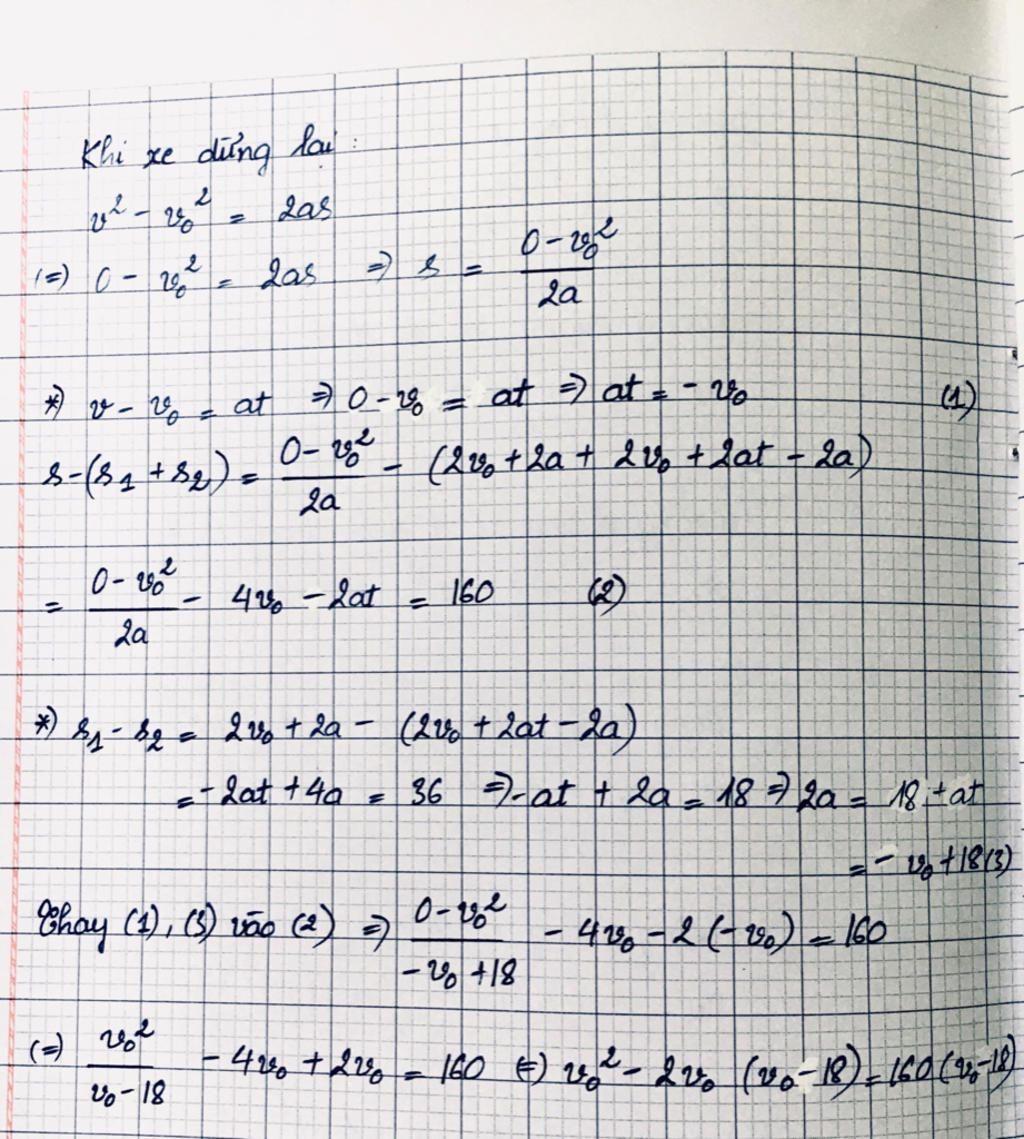 Khi xe dừng lại:
v² - v₀² = 2as
(=) 0 - v₀² = 2as => s = (0 - v₀²)/(2a)
*) v - v₀ = at => 0 - v₀ = at => at = - v₀ (1)
s - (s₁ + s₂) = (0 - v₀²)/(2a) - (2v₀ + 2a + 2v₀ + 2at - 2a)
= (0 - v₀²)/(2a) - 4v₀ - 2at = 160 (2)
*) s₁ - s₂ = 2v₀ + 2a - (2v₀ + 2at - 2a)
= - 2at + 4a = 36 => - at + 2a = 18 => 2a = 18 + at
= - v₀ + 18 (3)
Thay (1), (3) vào (2) => (0 - v₀²)/(- v₀ + 18) - 4v₀ - 2(- v₀) = 160
(=) v₀²/(v₀ - 18) - 4v₀ + 2v₀ = 160 (=) v₀² - 2v₀ (v₀ - 18) = 160 (v₀ - 18)